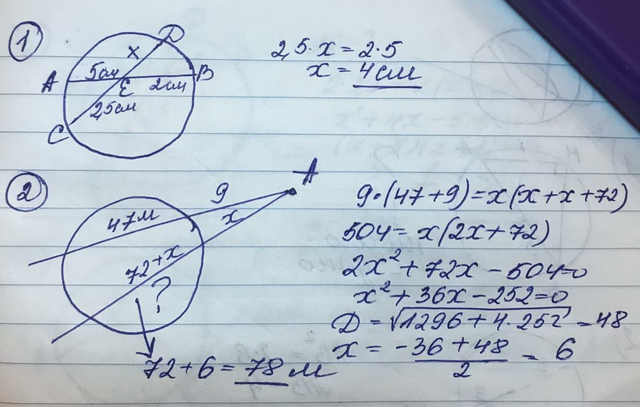 ①
D
x
A
5см
E
2см
B
2,5см
C
2,5·x = 2·5
x = 4см
②
A
9
x
47м
72+x
?
72+6 = 78 м
9·(47+9)=x(x+x+72)
504 = x(2x+72)
2x²+72x-504=0
x²+36x-252=0
D = √1296+4·252 = 48
x = -36+48/2 = 6